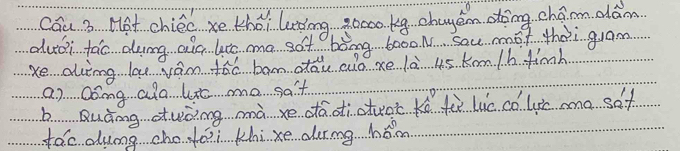 Câu 3. Một chiếc xe khối lượng 20000 kg chuyển động chậm dần
dưới tác dụng của lực ma sát bằng 6000 N. Sau một thời gian
xe dừng lại vận tốc ban đầu của xe là 45 km/h tính
a) Công của lực ma sát
b Quãng đường mà xe đã đi được kể từ lúc có lực ma sát
tác dụng cho tới khi xe dừng hẳn